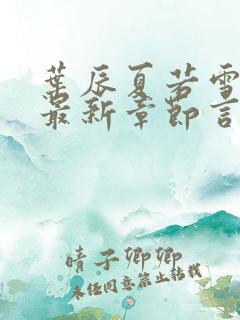 葉辰夏若雪
最新章節言
晴子卿卿
未经同意禁止转载